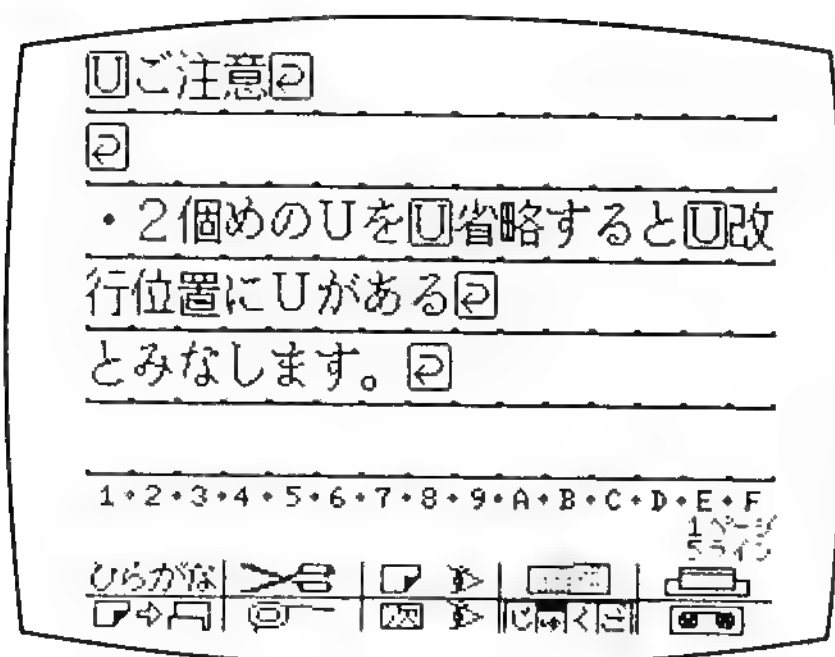 Uご注意⏎
⏎
・2個めのUをU省略するとU改
行位置にUがある⏎
とみなします。⏎
1・2・3・4・5・6・7・8・9・A・B・C・D・E・F
1ページ
5ライン
ひらがな
次 じゅくご